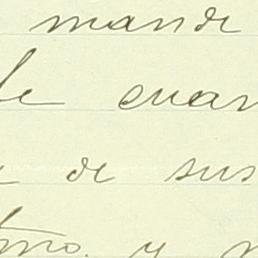 mande
le cuan
de sus
tmo. y